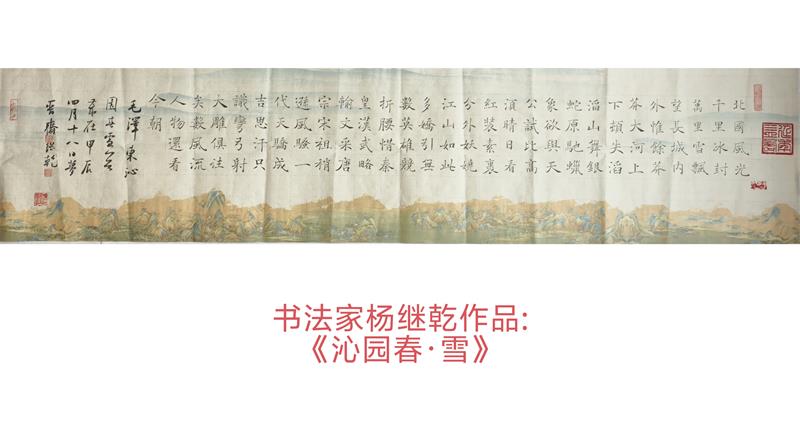 北國風光
千里冰封
萬里雪飄
望長城內
外惟餘莽
莽大河上
下頓失滔
滔山舞銀
蛇原馳蠟
象欲與天
公試比高
須晴日看
紅裝素裹
分外妖嬈
江山如此
多嬌引無
數英雄競
折腰惜秦
皇漢武略
輸文采唐
宗宋祖稍
遜風騷一
代天驕成
吉思汗只
識彎弓射
大雕俱往
矣數風流
人物還看
今朝
毛澤東沁
園春雪
歲在甲辰
四月十八日
繼乾
书法家杨继乾作品:
《沁园春·雪》